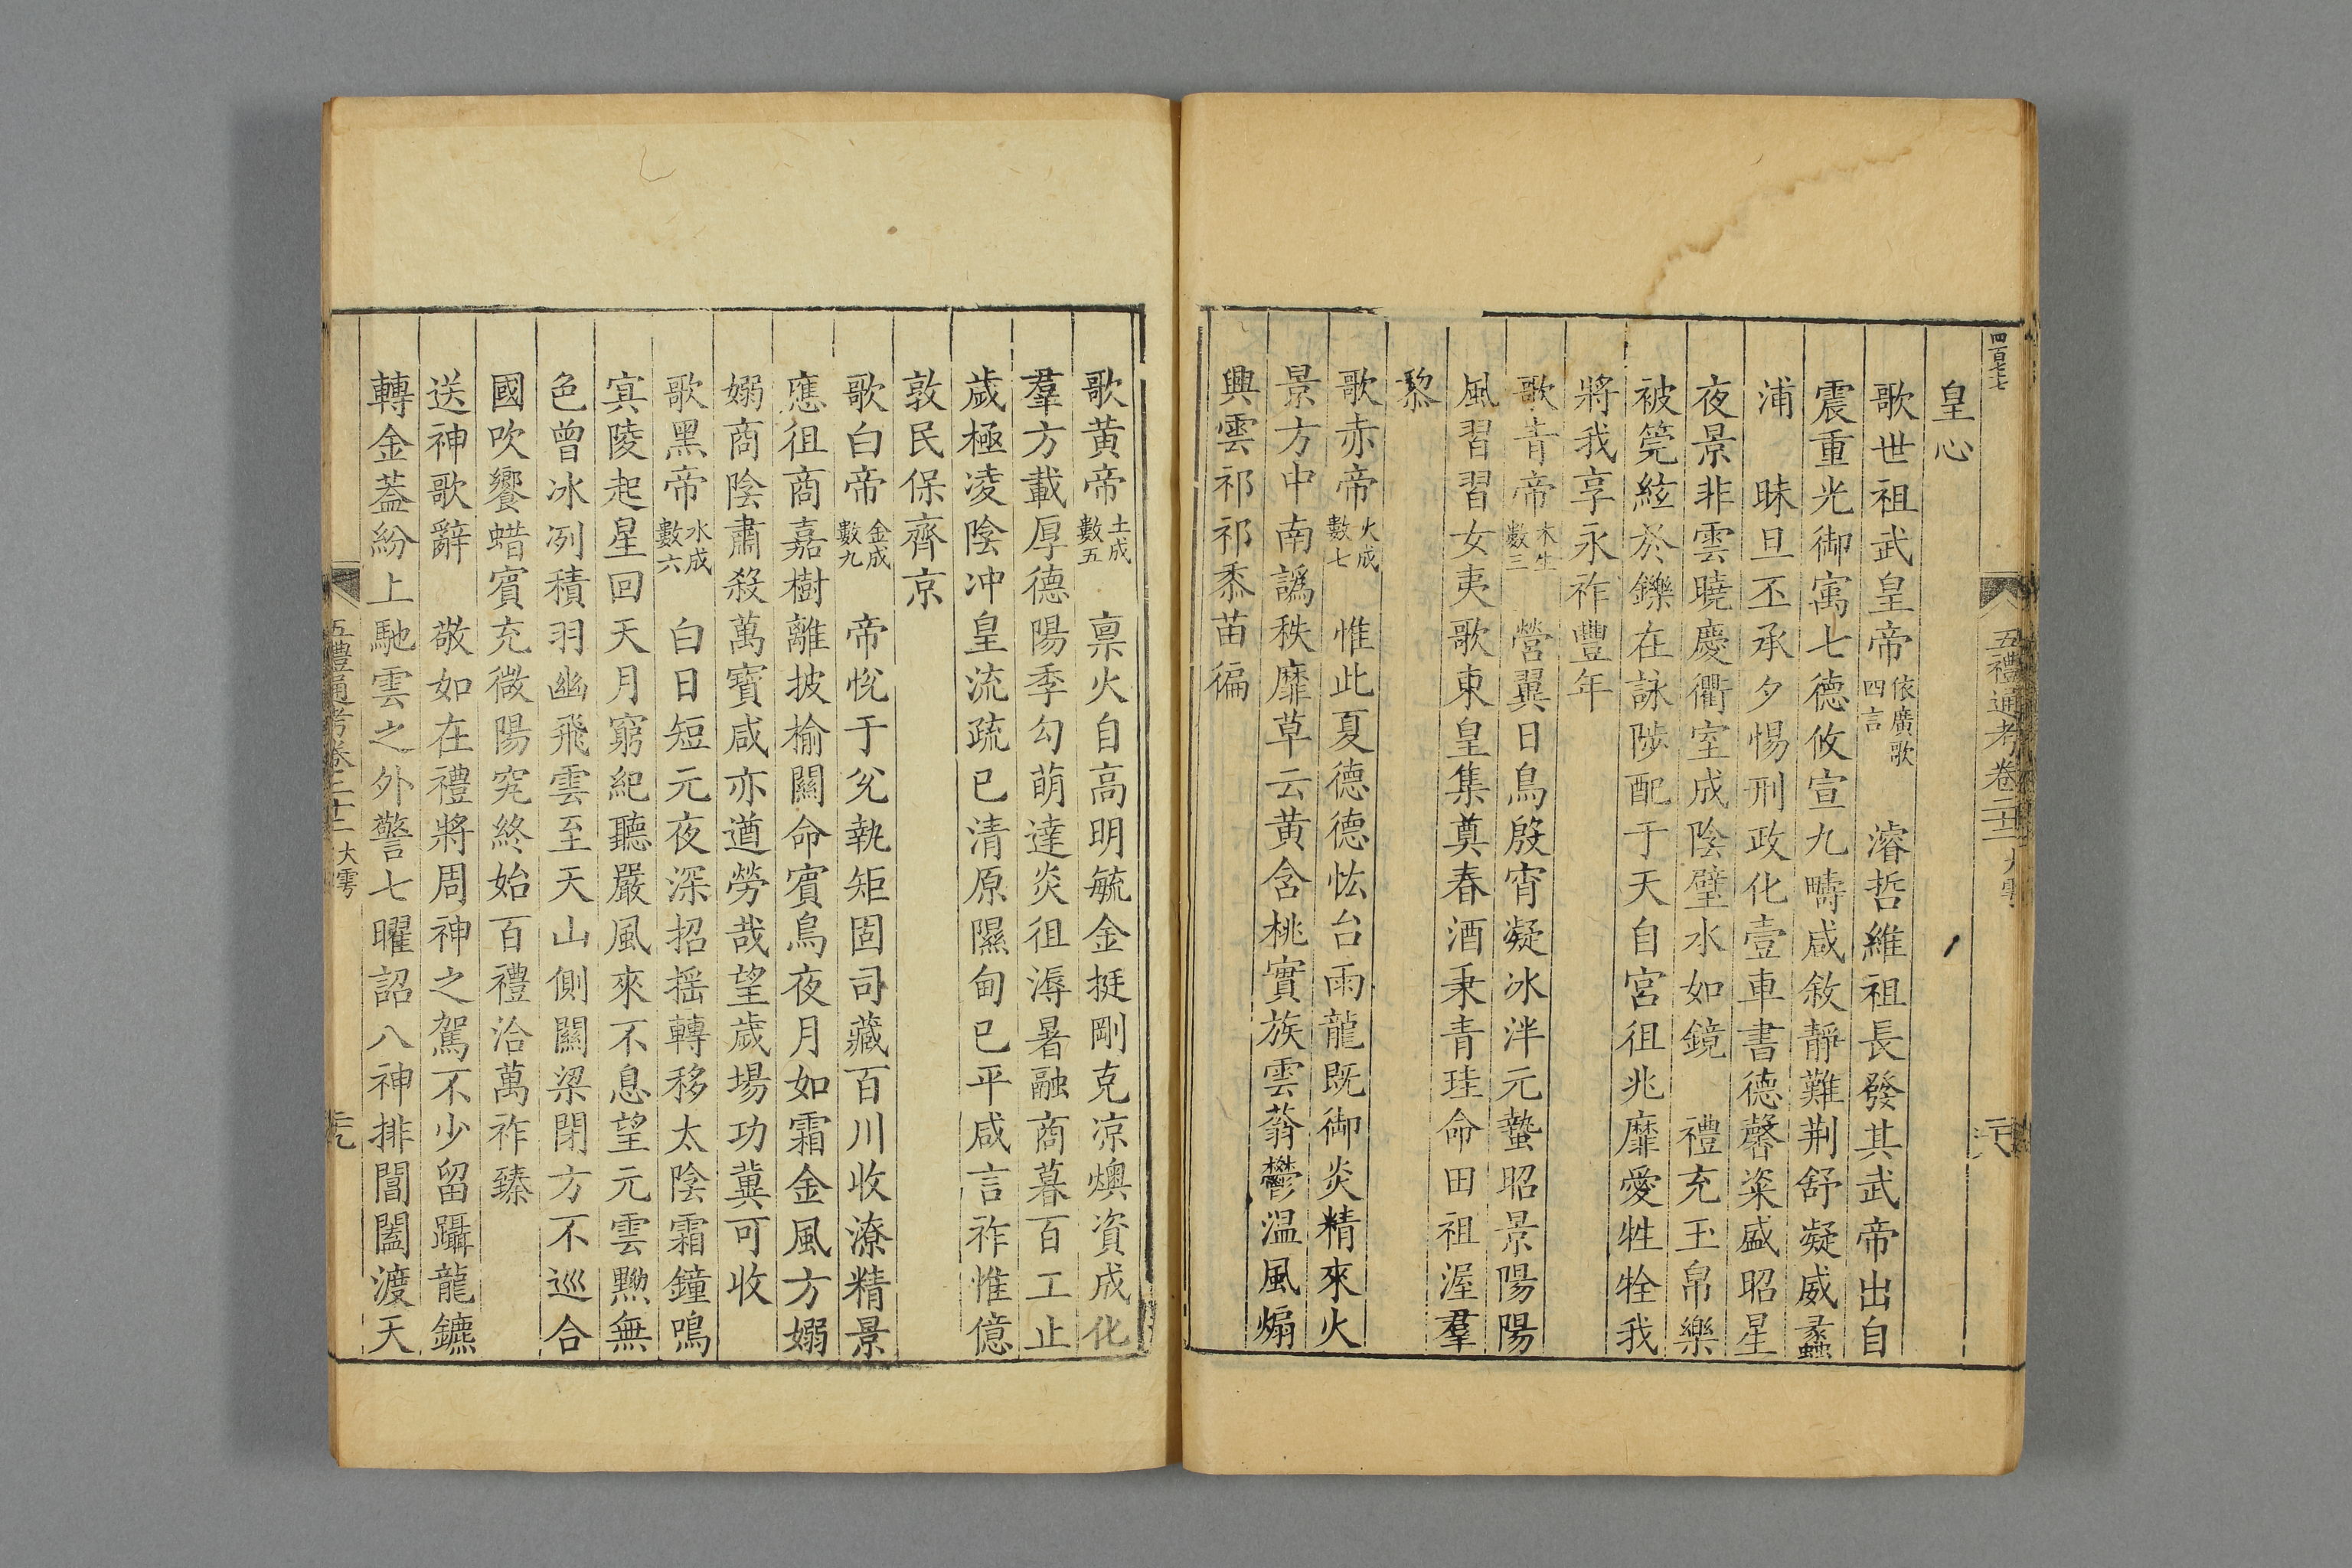 四百七七
五禮通考卷二十二 大雩
皇心
歌世祖武皇帝 依廣歌四言 濬哲維祖長發其武帝出自
震重光御㝢七德攸宣九疇咸敘靜難荆舒凝威蠡
浦 昧旦丕承夕惕刑政化壹車書德馨粢盛昭星
夜景非雲曉慶衢室成陰璧水如鏡 禮充玉帛樂
被筦絃於鑠在詠陟配于天自宮徂兆靡愛牲牷我
將我享永祚豐年
歌青帝 木生數三 營翼日鳥殷宵凝冰泮元蟄昭景陽陽
風習習女夷歌東皇集奠春酒秉青珪命田祖渥羣
黎
歌赤帝 火成數七 惟此夏德德恢台雨龍既御炎精來火
景方中南譌秩靡草云黃含桃實族雲蓊鬱温風煽
興雲祁祁黍苗徧
歌黃帝 土成數五 稟火自高明毓金挺剛克凉燠資成化
羣方載厚德陽季勾萌達炎徂溽暑融商暮百工止
歲極凌陰冲皇流疏已清原隰甸已平咸言祚惟億
敦民保齊京
歌白帝 金成數九 帝悅于兌執矩固司藏百川收潦精景
應徂商嘉樹離披榆關命賓鳥夜月如霜金風方嫋
嫋商陰肅殺萬寶咸亦遒勞哉望歲場功冀可收
歌黑帝 水成數六 白日短元夜深招搖轉移太陰霜鐘鳴
冥陵起星回天月窮紀聽嚴風來不息望元雲黝無
色曾冰冽積羽幽飛雲至天山側關梁閉方不巡合
國吹饗蜡賓充微陽究終始百禮洽萬祚臻
送神歌辭 敬如在禮將周神之駕不少留躡龍鑣
轉金蓋紛上馳雲之外警七曜詔八神排閶闔渡天
五禮通考卷二十二 大雩